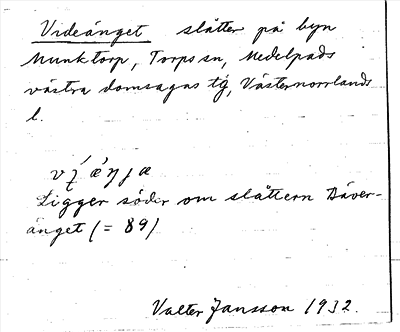 Videänget slåtter på byn
Munktorp, Torps sn, Medelpads
västra domsagas tg, Västernorrlands
l.
Ligger söder om slåttern Däver-
änget (= 89)
Valter Jansson 1932.